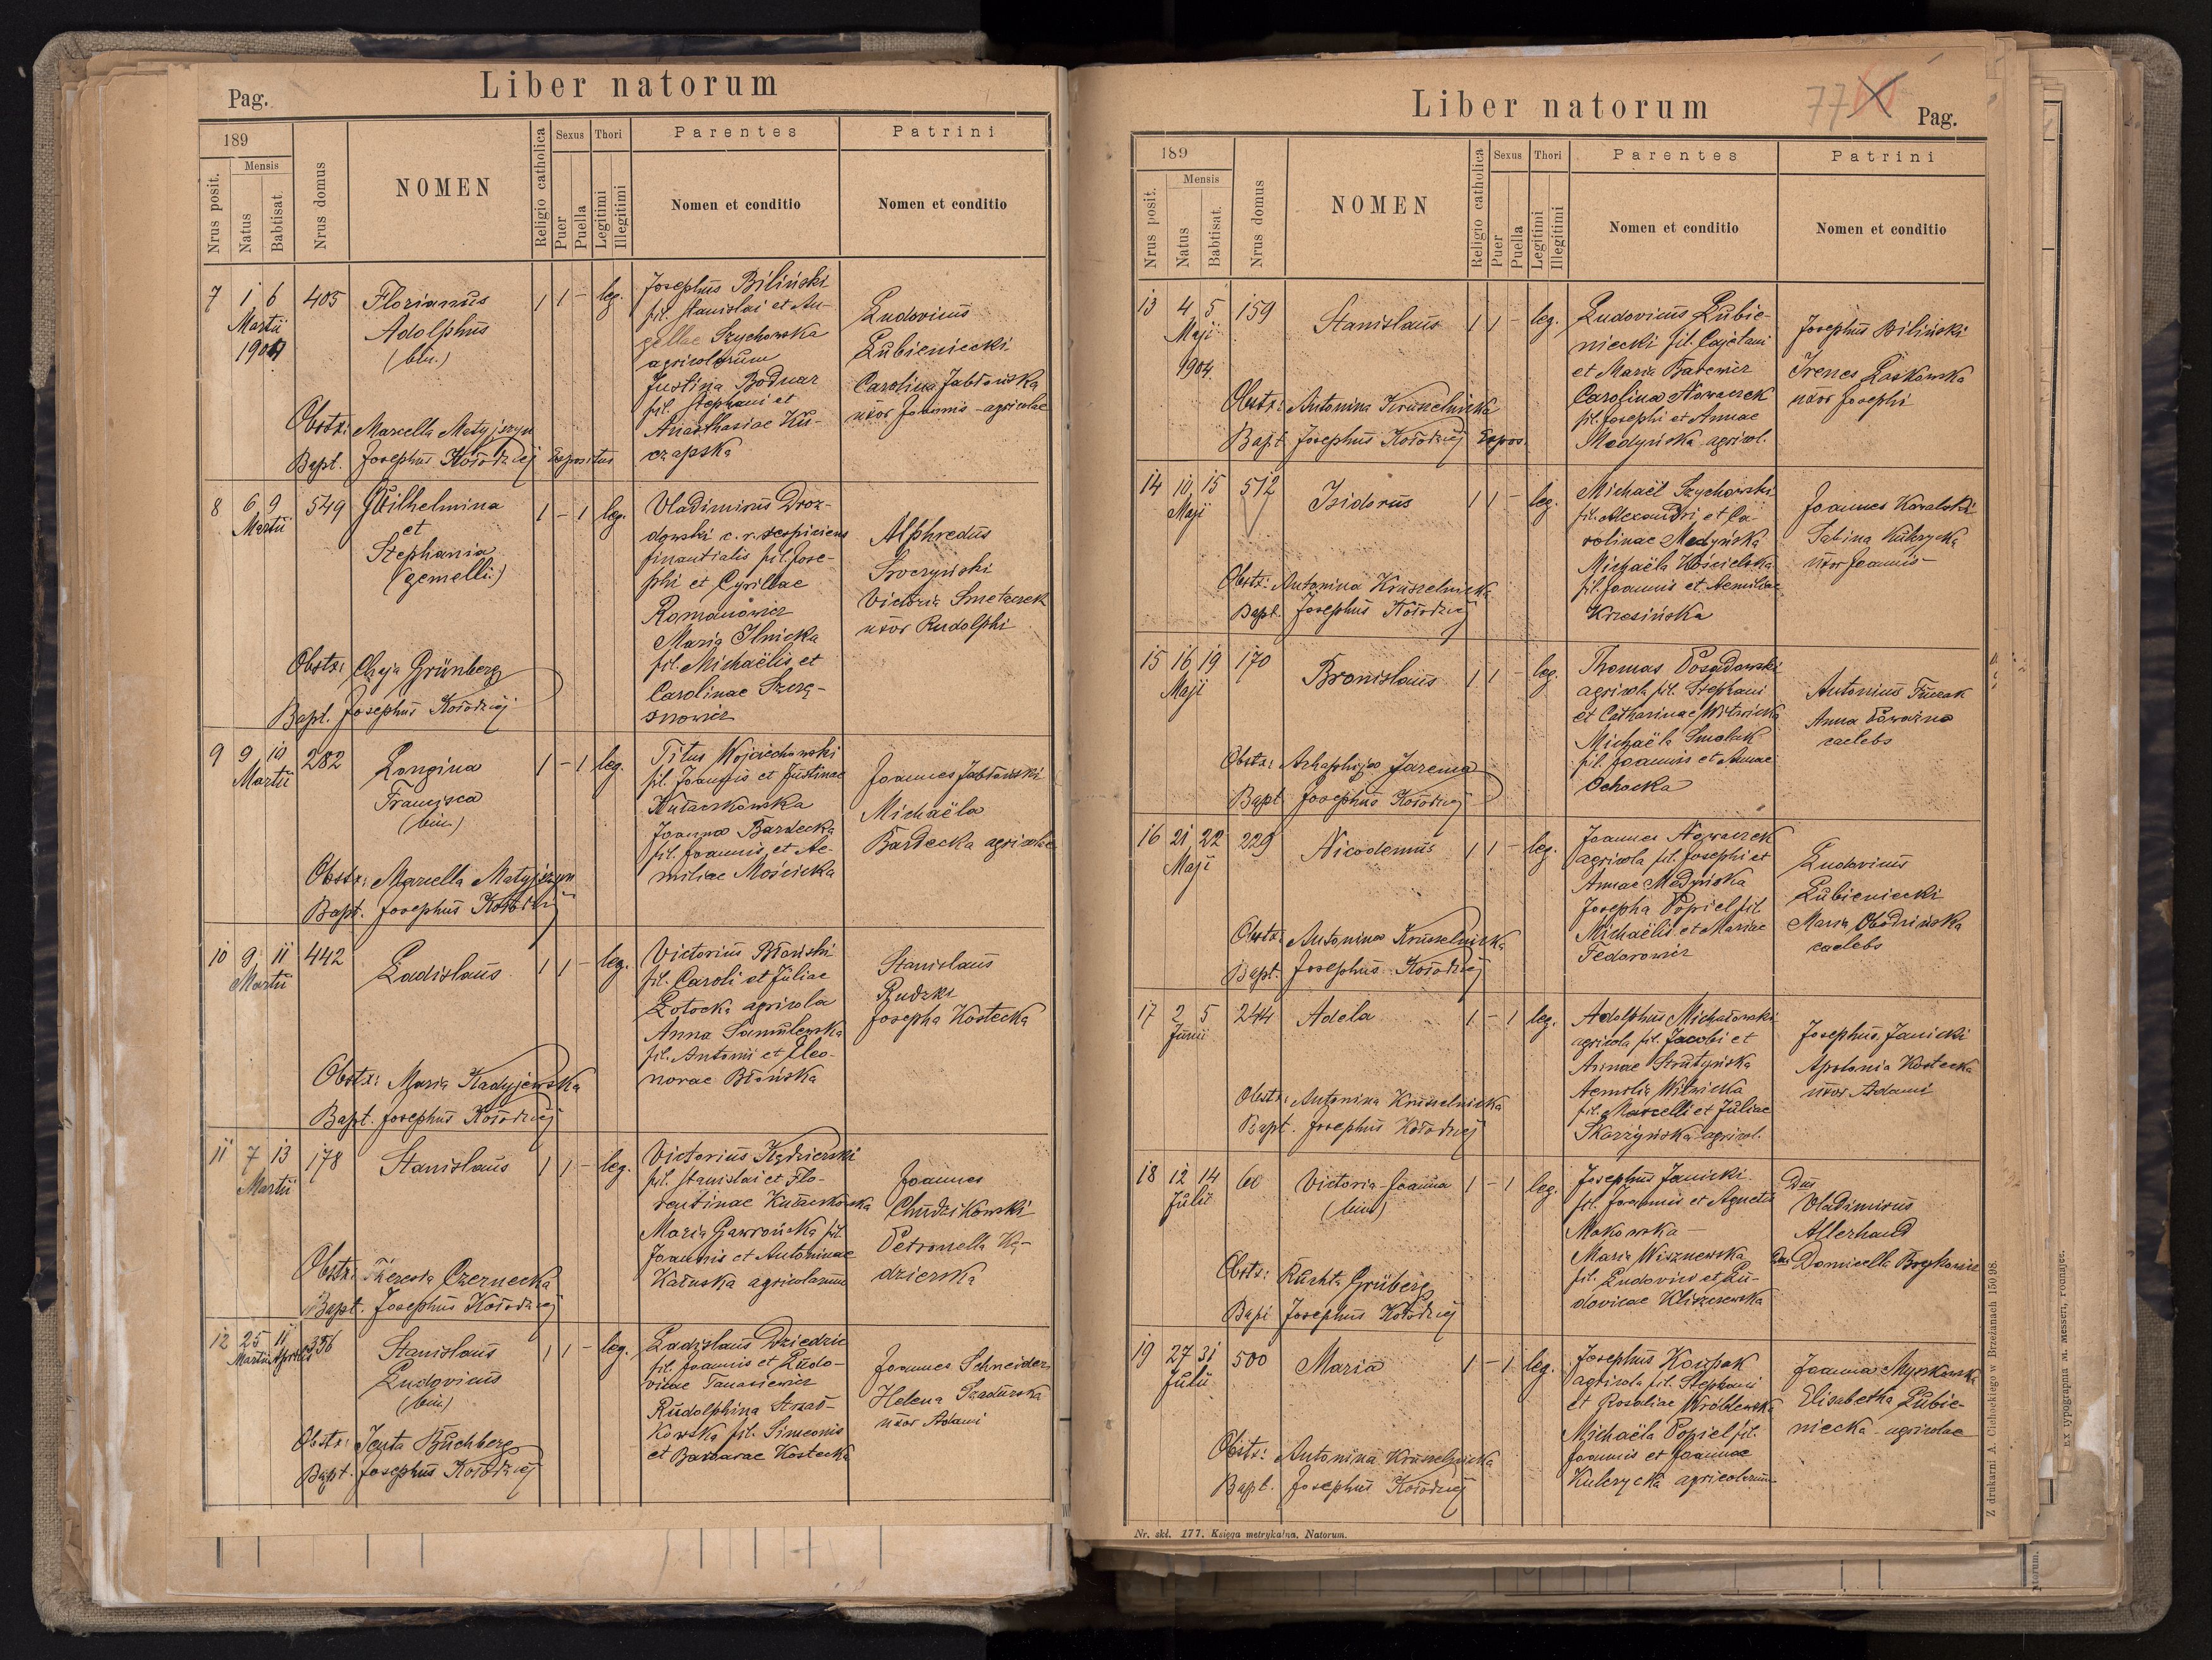 Liber natorum
Pag.
189
Nrus posit.
Mensis
Natus
Babtisat.
Nrus domus
NOMEN
Religio catholica
Sexus
Puer
Puella
Thori
Legitimi
Illegitimi
Parentes
Nomen et conditio
Patrini
Nomen et conditio
7 1 6 405 Florianus 1 1 - leg. Josephus Biliński
Martii Adolphus fil. Stanislai et An-
1904 (bin.) gellae Szychowska
agricolarum
Justina Bodnar
fil. Stephani et
Anasthasiae Ku-
czapska
Ludovicus
Łubieniecki
Carolina Jabłońska
uxor Joannis - agricolae
Obstx: Marcella Matyjszyn
Bapt. Josephus Kołodziej Expositus
8 6 9 549 Wilhelmina 1 - 1 leg. Vladimirus Droz-
Martii et dowski c. r. respiciens
Stephania finantialis fil. Jose-
(gemelli) phi et Cyrillae
Romanowicz
Maria Ilnicka
fil. Michaëlis et
Carolinae
Alphredus
Victoria Smetaczek
uxor Rudolphi
Obstx: Chaja Grünberg
Bapt. Josephus Kołodziej
9 9 10 282 Longina 1 - 1 leg. Titus Wojciechowski
Martii Francisca fil. Joannis et Justinae
(bin.) Kułaczkowska
Joanna Bardecka
fil. Joannis et Ae-
miliae Mościcka
Joannes Jabłoński
Michaëla
Bardecka agricolae
Obstx: Marcella Matyjszyn
Bapt. Josephus Kołodziej
10 9 11 442 Ladislaus 1 1 - leg. Victorius Błoński
Martii fil. Caroli et Juliae
Łotocka agricola
Anna Samulewska
fil. Antonii et Eleo-
norae Błońska
Stanislaus
Rudzki
Josepha Kostecka
Obstx: Maria Kadyjewska
Bapt. Josephus Kołodziej
11 7 13 178 Stanislaus 1 1 - leg. Victorius Kędzierski
Martii fil. Stanislai et Flo-
rentinae Kułaczkowska
Maria Gawrońska fil.
Joannis et Antoninae
Kałuska agricolarum
Joannes
Chudzikowski
Petronella Kę-
dzierska
Obstx: Theresia Czernecka
Bapt. Josephus Kołodziej
12 25 11 356 Stanislaus 1 1 - leg. Ladislaus Dziedzic
Martii Aprilis Ludovicus fil. Joannis et Ludo-
(bin) vicae Tanasiewicz
Rudolphina Strzał-
kowska fil. Simeonis
et Barbarae Kostecka
Joannes Schneider
Helena Szadurska
uxor Adami
Obstx: Jenta Buchberg
Bapt. Josephus Kołodziej
Liber natorum
77
Pag.
189
Nrus posit.
Mensis
Natus
Babtisat.
Nrus domus
NOMEN
Religio catholica
Sexus
Puer
Puella
Thori
Legitimi
Illegitimi
Parentes
Nomen et conditio
Patrini
Nomen et conditio
13 4 5 159 Stanislaus 1 1 - leg. Ludovicus Łubie-
Maji niecki fil. Cajetani
1904 et Maria Barewicz
Carolina Nowaczek
fil. Josephi et Annae
Medyńska agricol.
Josephus Biliński
Irenes Laskowska
uxor Josephi
Obstx: Antonina Kruszelnicka
Bapt Josephus Kołodziej Expos.
14 10 15 512 Isidorus 1 1 - leg. Michaël Szychowski
Maji fil. Alexandri et Ca-
rolinae Medyńska
Michaëla Kościelska
fil. Joannis et Aemiliae
Krzesińska
Joannes Kowalski
Sabina Kulczycka
uxor Joannis
Obstx: Antonina Kruszelnicka
Bapt. Josephus Kołodziej
15 16 19 170 Bronislaus 1 1 - leg. Thomas Posadowski
Maji agricola fil. Stephani
et Catharinae Witwicka
Michaëla Smoluk
fil. Joannis et Annae
Ochocka
Antonius Fuczak
Anna
caelebs
Obstx: Jarema
Bapt Josephus Kołodziej
16 21 22 229 Nicodemus 1 1 - leg. Joannes Nowaczek
Maji agricola fil. Josephi et
Annae Medyńska
Josepha Popiel fil.
Michaëlis et Mariae
Fedorowicz
Ludovicus
Łubieniecki
Maria Obodzińska
caelebs
Obstx: Antonina Kruszelnicka
Bapt. Josephus Kołodziej
17 2 5 244 Adela 1 - 1 leg. Adolphus Michałowski
Junii agricola fil. Jacobi et
Annae Strutyńska
Aemilia Witwicka
fil. Marcelli et Juliae
Skarżyńska agricol.
Josephus Janicki
Apolonia Kostecka
uxor Adami
Obstx: Antonina Kruszelnicka
Bapt. Josephus Kołodziej
18 12 14 60 Victoria Joanna 1 - 1 leg. Josephus Janicki
Julii (bin) fil. Joannis et Agnetis
Makowska
Maria Wiszniewska
fil. Ludovici et Lu-
dovicae Kliszczewska
Dus
Vladimirus
Allerhand
Dna Domicella
Obstx: Ruchla Grüberg
Bapt Josephus Kołodziej
19 27 31 500 Maria 1 - 1 leg. Josephus Koupak
Julii agricola fil. Stephani
et Rosaliae Wróblewska
Michaëla Popiel fil.
Joannis et Joannae
Kulczycka agricolarum
Joannes
Elisabetha Łubie-
niecka agricolae
Obstx: Antonina Kruszelnicka
Bapt. Josephus Kołodziej
Nr. skl. 177. Księga metrykalna, Natorum.
Z drukarni A. Cichockiego w Brzeżanach 15098.